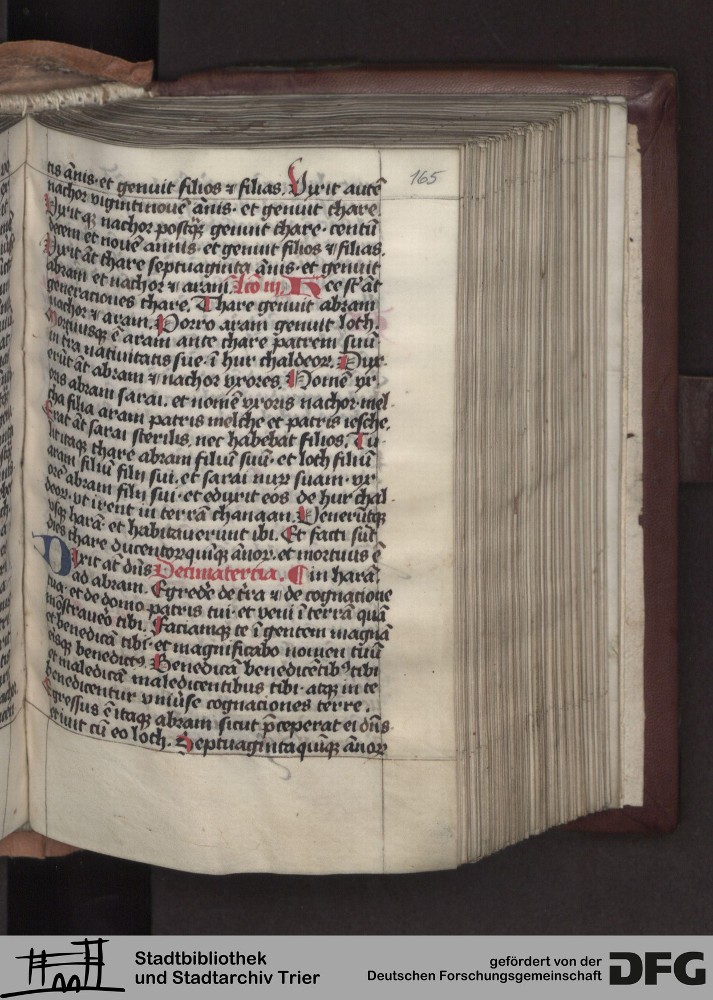 165
tis ānis · et genuit filios ⁊ filias. Vixit autē
nachor vigintinouē ānis · et genuit thare.
Vixit qꝫ nachor postqꝫ genuit thare · centū
decem et nouē annis · et genuit filios ⁊ filias.
Vixit āt thare septuaginta ānis · et genuit
abram et nachor ⁊ aram. lc̄o iij. Hee st āt
generationes thare. Thare genuit abram
nachor ⁊ aram. Porro aram genuit loth.
Mortuusqꝫ ē aram ante thare patrem suū
in tra natiuitatis sue · ī hur chaldeoꝝ. Dux
erūt āt abram ⁊ nachor vxores. Nomē vx
oris abram sarai. et nomē vxoris nachor · mel
cha filia aram patris melche et patris iesche.
Erat āt sarai sterilis, nec habebat filios. Tu
lit itaqꝫ thare abram filiū suū · et loth filiū
aram filiū filij sui · et sarai nurū suam · vx
orē abram filij sui · et eduxit eos de hur chal
deoꝝ · vt irent in terrā chanaan. Venerūtqꝫ
vsqꝫ harā · et habitauerunt ibi. Et facti sūt
dies thare ducentoꝝ quīqꝫ ānoꝝ. et mortuus ē
Dixit āt dn̄s Decimatercia. ¶ in harā.
ad abram. Egrede de tr̄a ⁊ de cognatione
tua · et de domo patris tui · et veni ī terrā quā
mōstrauero tibi. Faciamqꝫ te ī gentem magnā
et benedicā tibi · et magnificabo nomen tuū
erisqꝫ benedictꝰ. Benedicā benedicētibꝰ tibi
et maledicā maledicentibus tibi · atqꝫ in te
benedicentur vniuse cognationes terre.
Egressus ē itaqꝫ abram sicut p̄ceperat ei dn̄s
et iuit cū eo loth. Septuagintaquīqꝫ ānoꝝ
Stadtbibliothek
und Stadtarchiv Trier
gefördert von der
Deutschen Forschungsgemeinschaft
DFG